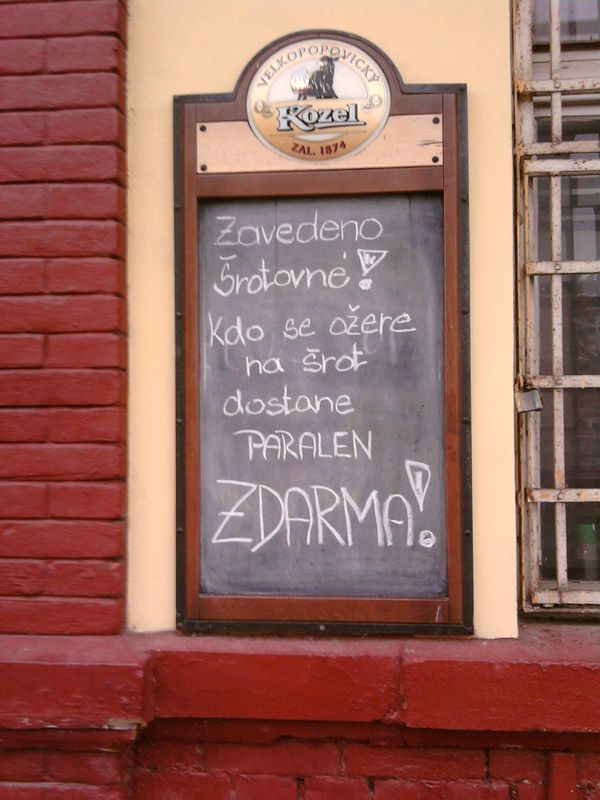 VELKOPOPOVICKÝ
Kozel
ZAL. 1874
Zavedeno
Šrotovné!
Kdo se ožere
na šrot
dostane
PARALEN
ZDARMA!